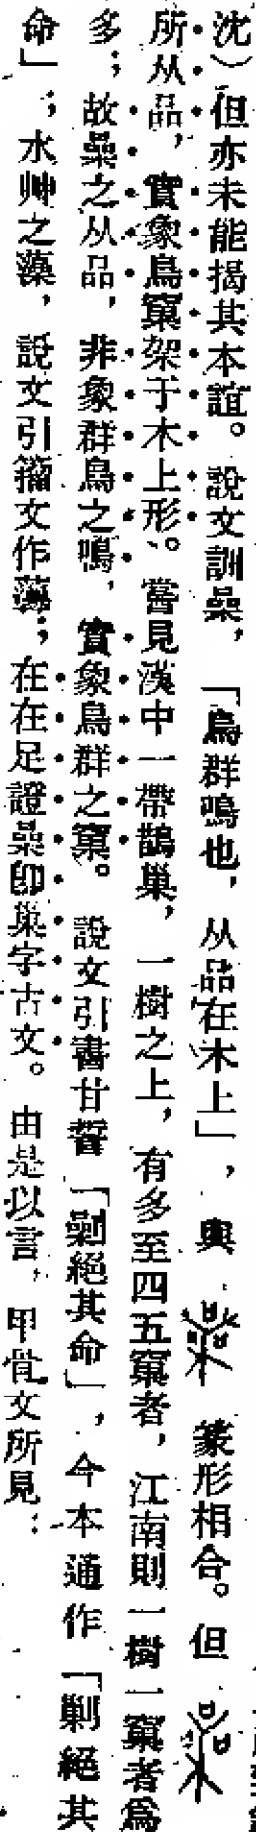 沈）但亦未能揭其本誼。說文訓喿，「鳥群鳴也，从品在木上」，與 篆形相合。但
所从品，實象鳥窠架于木上形。嘗見漢中一帶鵲巢，一樹之上，有多至四五窠者，江南則一樹一窠者爲
多；故喿之从品，非象群鳥之鳴，實象鳥群之窠。說文引書甘誓「劋絕其命」，今本通作「剿絕其
命」；水艸之藻，說文引籀文作薻；在在足證喿卽巢字古文。由是以言，甲骨文所見：